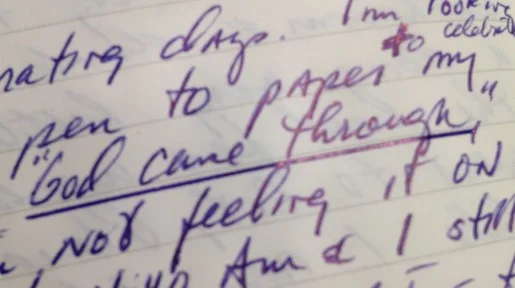 days. I'm
to celebrat
pen to paper my
"God came through,"
Not feeling it on
Am I still